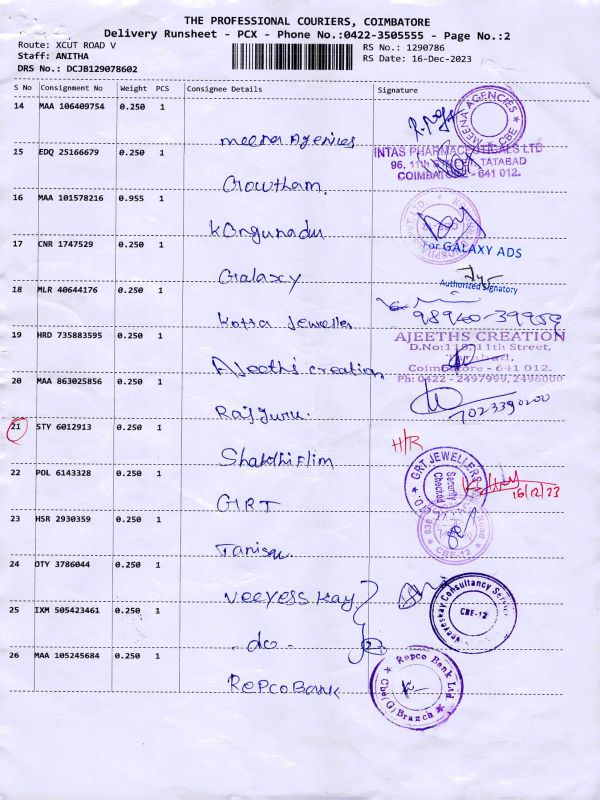 THE PROFESSIONAL COURIERS, COIMBATORE
Delivery Runsheet - PCX - Phone No.:0422-3505555 - Page No.:2
Route: XCUT ROAD V RS No.: 1290786
Staff: ANITHA RS Date: 16-Dec-2023
DRS No.: DCJB129078602
S No Consignment No Weight PCS Consignee Details Signature
14 MAA 106409754 0.250 1 meena Agencies
MEENA AGENCIES CBE
15 EDQ 25166679 0.250 1 Crowtham.
INTAS PHARMACEUTICALS LTD
96, 11th TATABAD
COIMBATORE - 641 012.
16 MAA 101578216 0.955 1 Kongunadu
17 CNR 1747529 0.250 1 Galaxy
For GALAXY ADS
Authorized Signatory
18 MLR 40644176 0.250 1 Kotta Jeweller
98940-39959
19 HRD 735883595 0.250 1 Ajeeths creation
AJEETHS CREATION
D.No:115, 11th Street,
Coimbatore - 641 012.
Ph: 0422 - 2497999, 2498000
20 MAA 863025856 0.250 1 Rajguru.
7023390200
21 STY 6012913 0.250 1 Shakthi flim
H/R
22 POL 6143328 0.250 1 GRT
GRT JEWELLERS
Security Checked
16/12/23
23 HSR 2930359 0.250 1 Tanisq
CBE-12
24 OTY 3786044 0.250 1 veeyess kay
Veeyeskay Consultancy Service
CBE-12
25 IXM 505423461 0.250 1 - do -
26 MAA 105245684 0.250 1 Repco Bank
Repco Bank Ltd.
Cbe(G) Branch